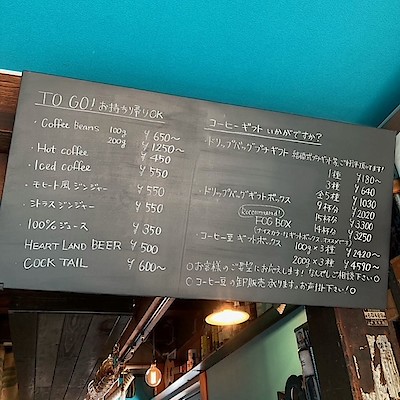 TO GO! お持ち帰りOK
・Coffee Beans 100g ¥650～
200g ¥1250～
・Hot coffee ¥450
Iced coffee ¥550
・モヒート風ジンジャー ¥550
・シトラスジンジャー ¥550
100%ジュース ¥350
HEART LAND BEER ¥500
COCK TAIL ¥600～
コーヒーギフト いかがですか?
・ドリップバッグプチギフト
1種 ¥180～
3種 ¥640
・ドリップバッグギフトボックス 全5種 ¥1030
9杯分 ¥2020
Recommend! 15杯分 ¥3300
FCG BOX 14杯分 ¥3250
・コーヒー豆 ギフトボックス
100g×3種 ¥2420～
200g×3種 ¥4590～
○お客様のご要望にお応えします! なんでもご相談下さい○
○コーヒー豆の卸販売承ります。お声掛け下さい!○